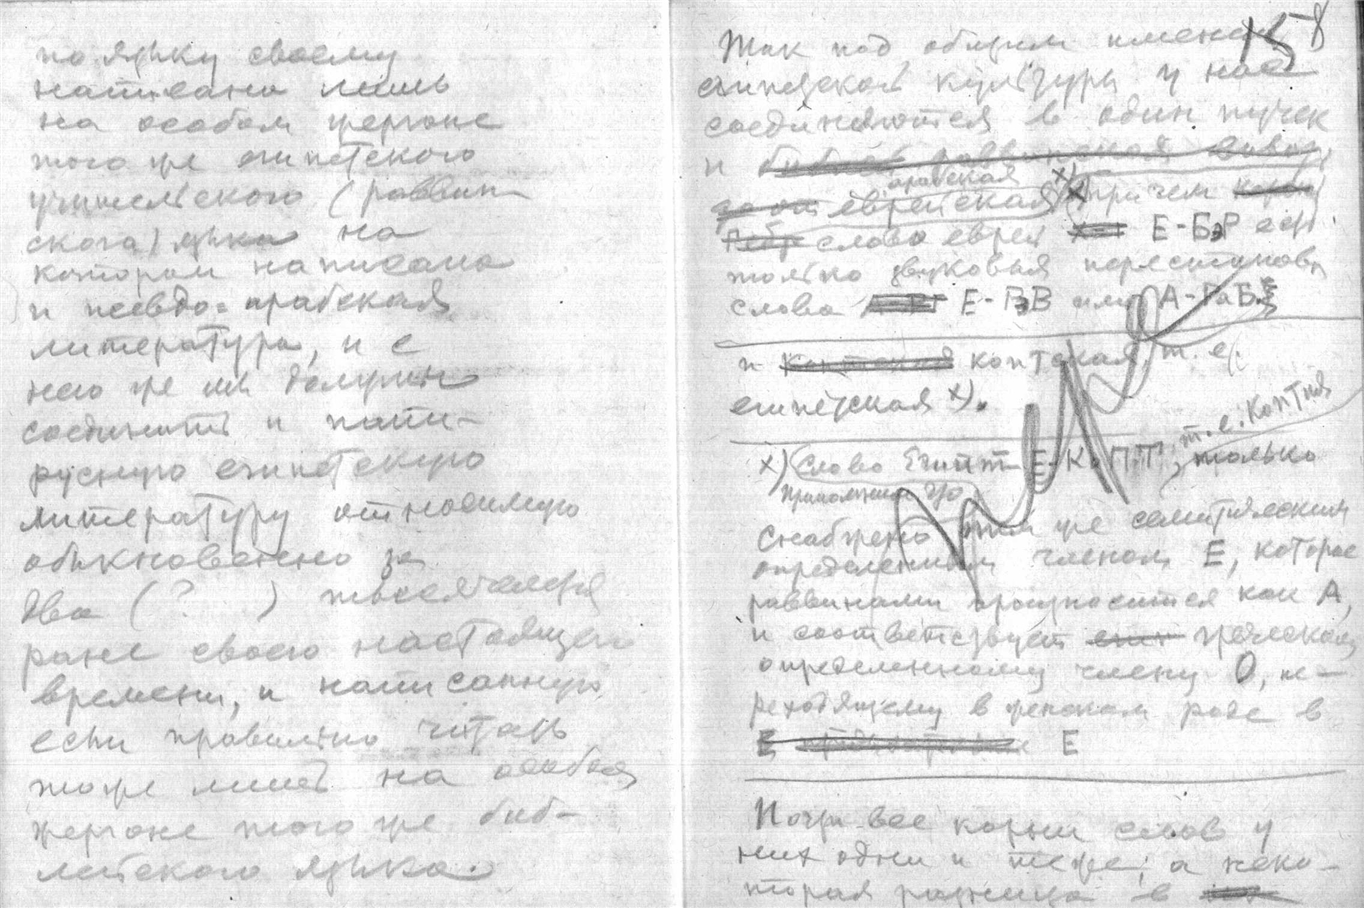 по языку своему
написана лишь
на особом жергоне
того же египетского
учительского (раввин-
ского) языка на
котором написана
и псевдо-арабская
литература, и с
нею же мы должны
соединить и папи-
русную египетскую
литературу относимую
обыкновенно за
два (? ) тысячелетия
ранее своего настоящего
времени, и написанную
если правильно читать
тоже лишь на особом
жергоне того же биб-
лейского языка.
158
Так под общим именем
египетской культуры у нас
соединяются в один пучек
и
арабская х)
еврейская причем
слово еврей Е-БэР есть
только звуковая перестановка
слова Е-РэВ или А-РаБ
и коптская, т.е.
египетская х).
т.е. Коптия
х) Слово Египт Е-КоПТ; только
Припомним что
снабжено тем же семитическим
определенным членом Е, которое
раввинами произносится как А,
и соответствует греческому
определенному члену О, пе-
реходящему в женском роде в
Е
Почти все корни слов у
них одни и те же; а неко-
торая разница в